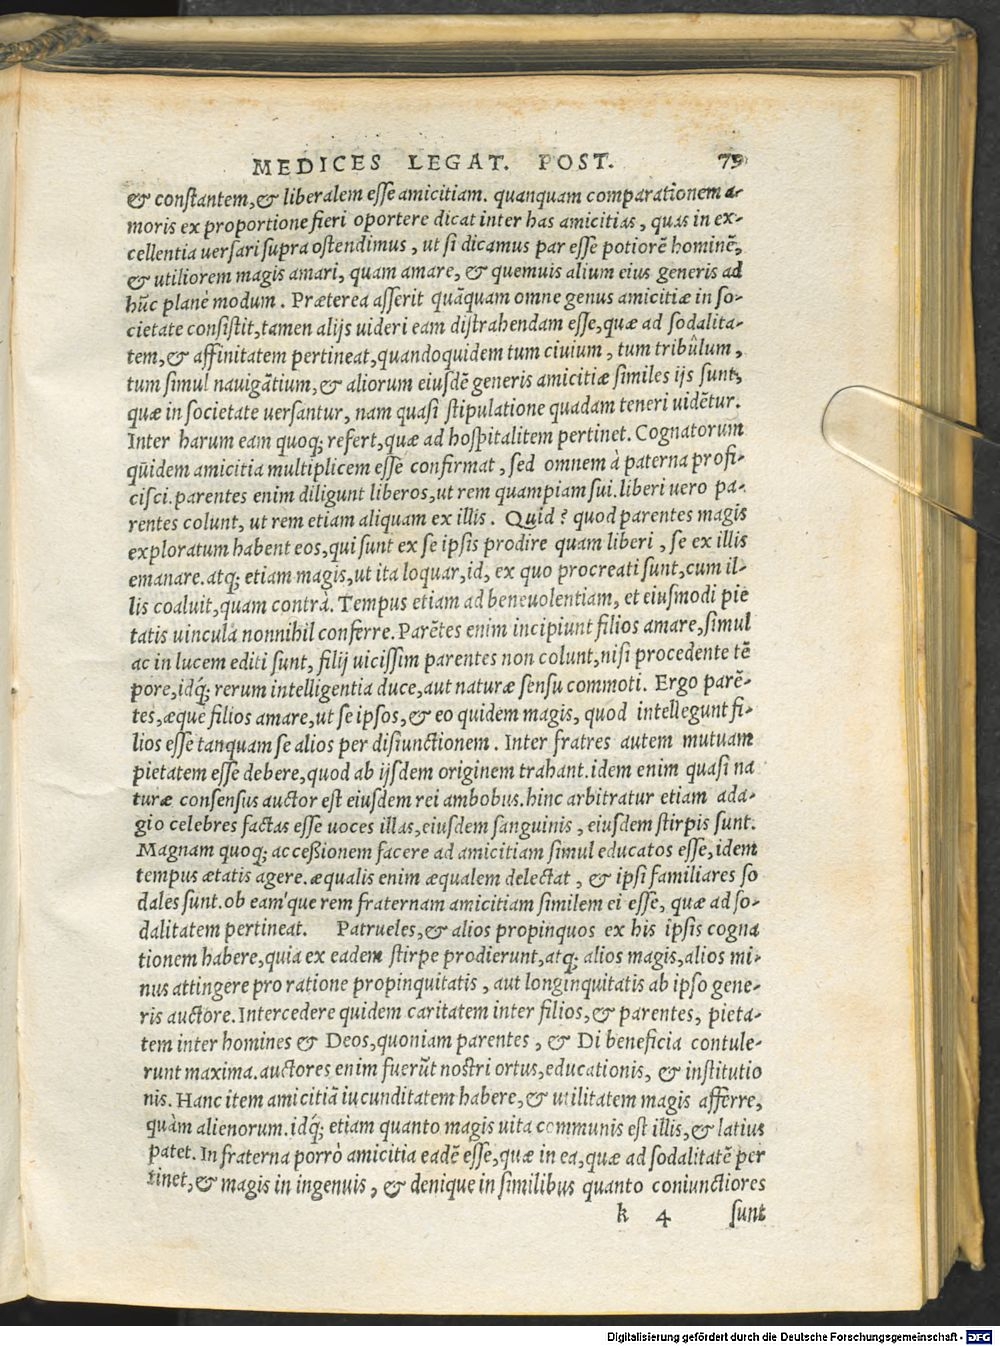 MEDICES LEGAT. POST. 79
& constantem, & liberalem esse amicitiam. quanquam comparationem a-
moris ex proportione fieri oportere dicat inter has amicitias, quas in ex-
cellentia uersari supra ostendimus, ut si dicamus par esse potiorē hominē,
& utiliorem magis amari, quam amare, & quemuis alium eius generis ad
hūc planè modum. Præterea asserit quāquam omne genus amicitiæ in so-
cietate consistit, tamen alijs uideri eam distrahendam esse, quæ ad sodalita-
tem, & affinitatem pertineat, quandoquidem tum ciuium, tum tribûlum,
tum simul nauigātium, & aliorum eiusdē generis amicitiæ similes ijs sunt,
quæ in societate uersantur, nam quasi stipulatione quadam teneri uidētur.
Inter harum eam quoq; refert, quæ ad hospitalitem pertinet. Cognatorum
qūidem amicitia multiplicem esse confirmat, sed omnem à paterna profi-
cisci. parentes enim diligunt liberos, ut rem quampiam sui. liberi uero pa-
rentes colunt, ut rem etiam aliquam ex illis. Quid? quod parentes magis
exploratum habent eos, qui sunt ex se ipsis prodire quam liberi, se ex illis
emanare. atq; etiam magis, ut ita loquar, id, ex quo procreati sunt, cum il-
lis coaluit, quam contrà. Tempus etiam ad beneuolentiam, et eiusmodi pie
tatis uincula nonnihil conferre. Parētes enim incipiunt filios amare, simul
ac in lucem editi sunt, filij uicissim parentes non colunt, nisi procedente tē
pore, idq́; rerum intelligentia duce, aut naturæ sensu commoti. Ergo parē-
tes, æque filios amare, ut se ipsos, & eo quidem magis, quod intellegunt fi-
lios esse tanquam se alios per disiunctionem. Inter fratres autem mutuam
pietatem esse debere, quod ab ijsdem originem trahant. idem enim quasi na
turæ consensus auctor est eiusdem rei ambobus. hinc arbitratur etiam ada-
gio celebres factas esse uoces illas, eiusdem sanguinis, eiusdem stirpis sunt.
Magnam quoq; accessionem facere ad amicitiam simul educatos esse, idem
tempus ætatis agere. æqualis enim æqualem delectat, & ipsi familiares so
dales sunt. ob eam'que rem fraternam amicitiam similem ei esse, quæ ad so-
dalitatem pertineat. Patrueles, & alios propinquos ex his ipsis cogna
tionem habere, quia ex eadem stirpe prodierunt, atq; alios magis, alios mi-
nus attingere pro ratione propinquitatis, aut longinquitatis ab ipso gene-
ris auctore. Intercedere quidem caritatem inter filios, & parentes, pieta-
tem inter homines & Deos, quoniam parentes, & Di beneficia contule-
runt maxima. auctores enim fuerūt nostri ortus, educationis, & institutio
nis. Hanc item amicitiā iucunditatem habere, & utilitatem magis afferre,
quàm alienorum. idq́; etiam quanto magis uita communis est illis, & latius
patet. In fraterna porrò amicitia eadē esse, quæ in ea, quæ ad sodalitatē per
tinet, & magis in ingenuis, & denique in similibus quanto coniunctiores
k 4 sunt
Digitalisierung gefördert durch die Deutsche Forschungsgemeinschaft - DFG